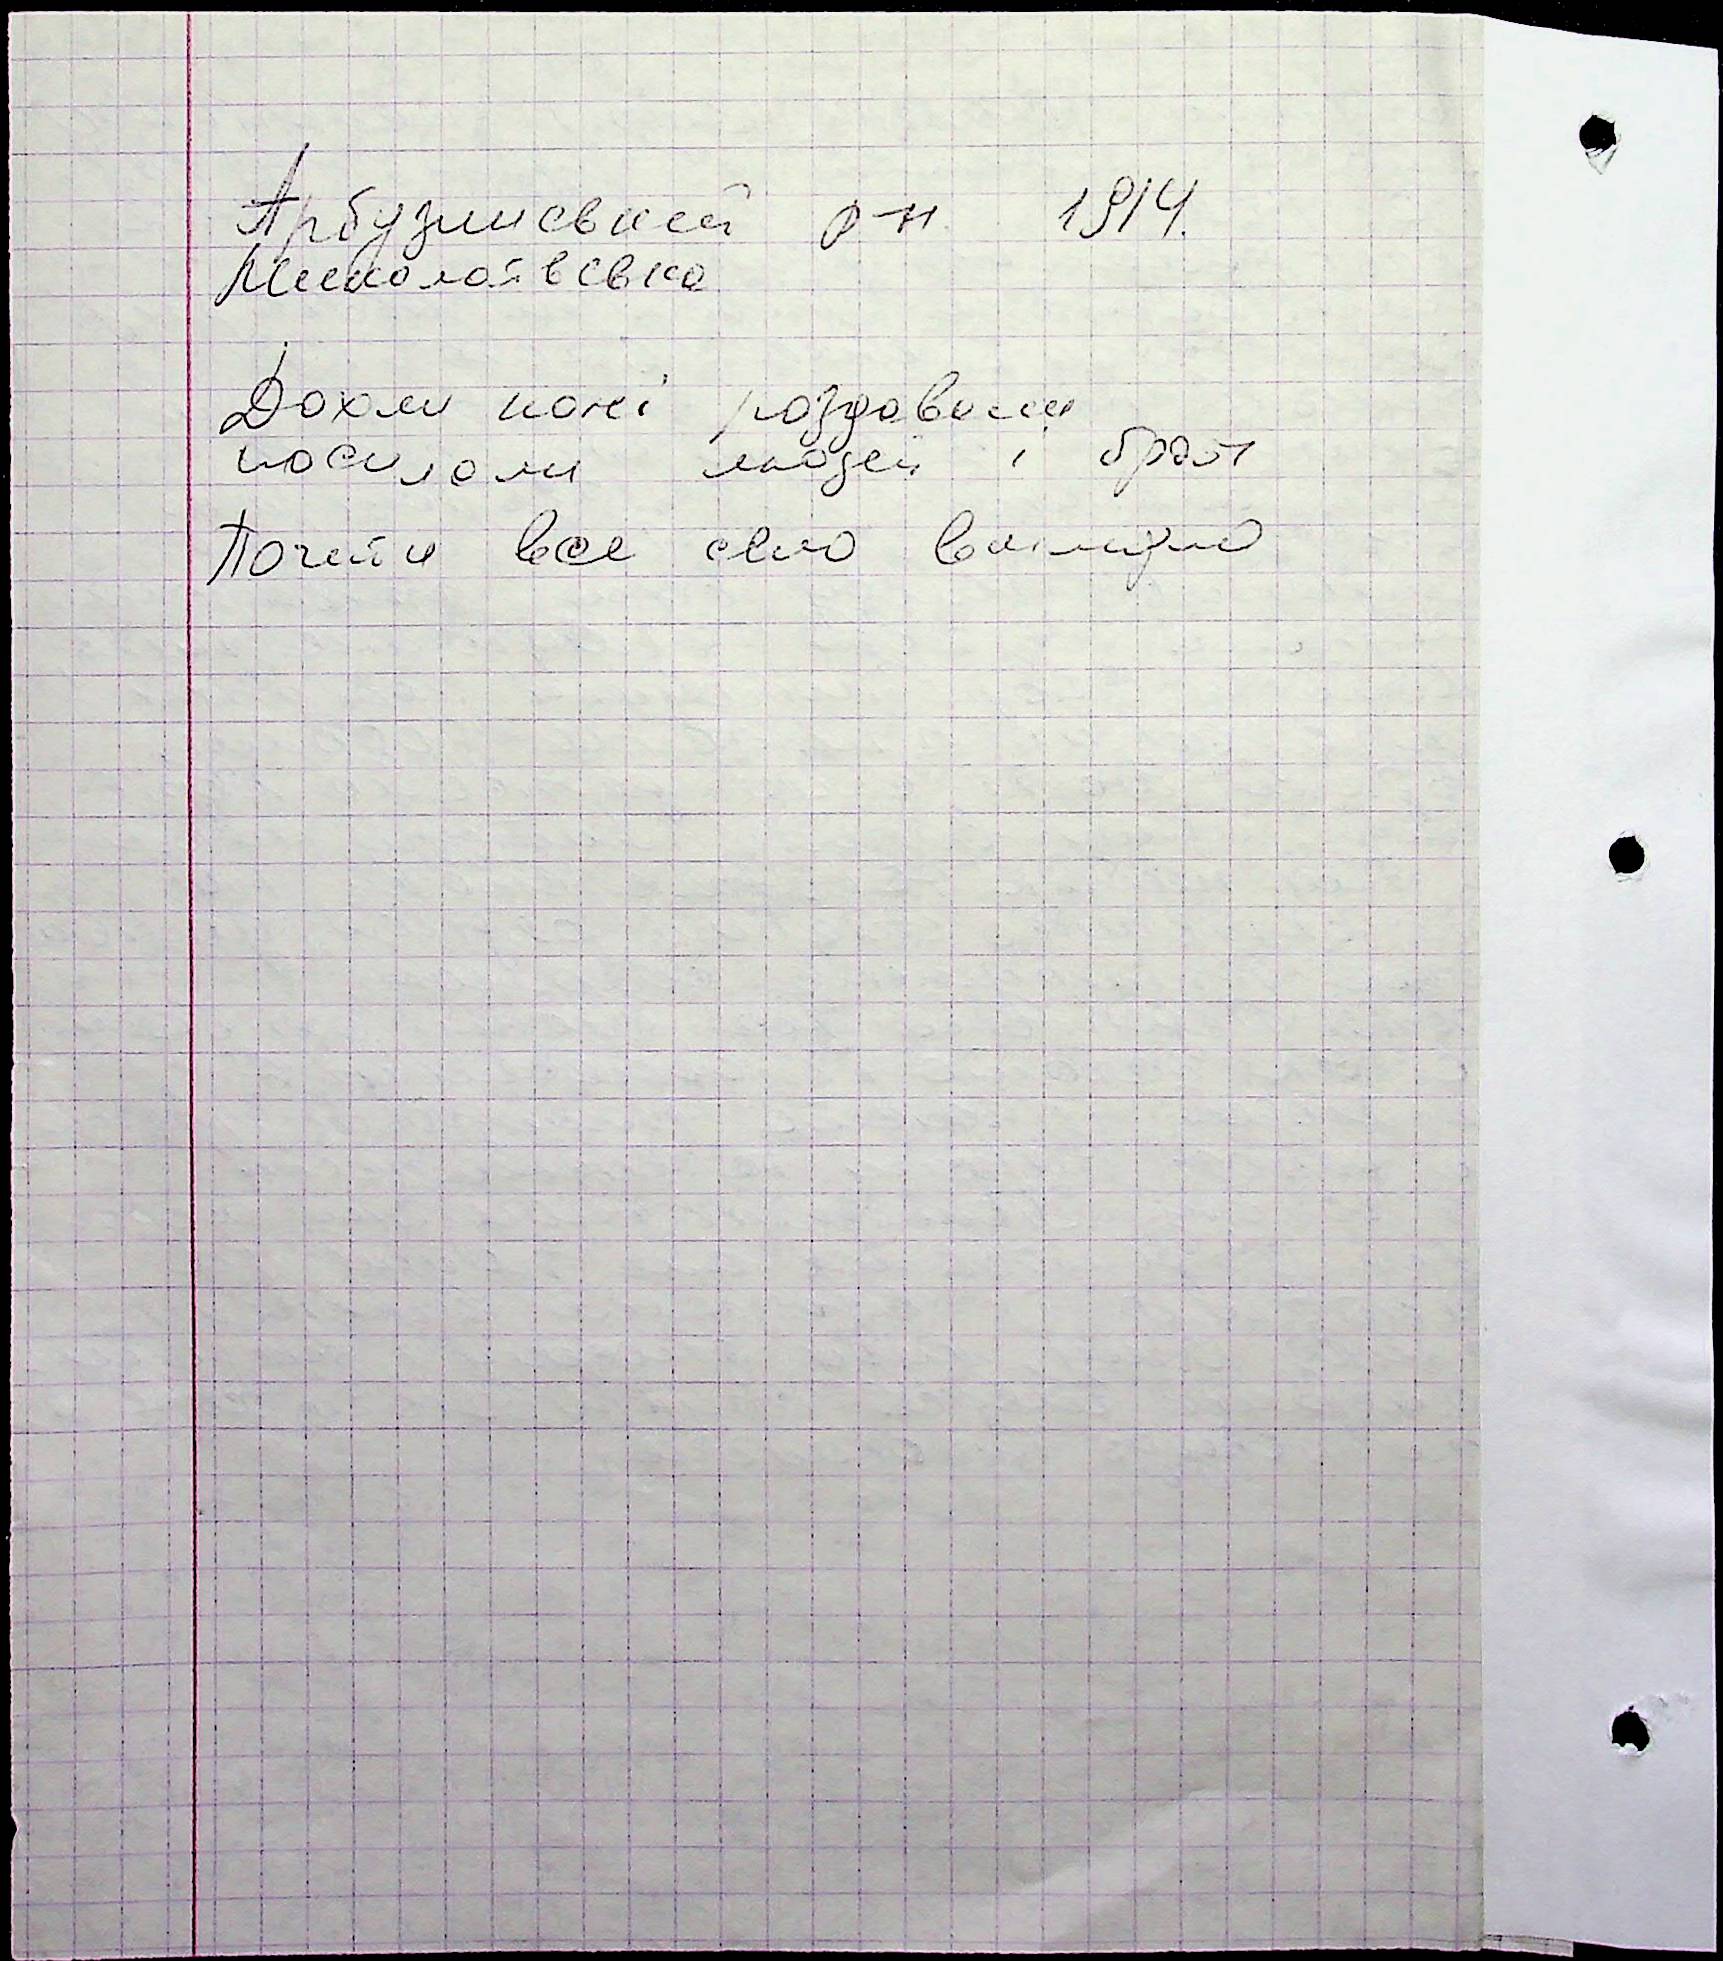 Арбузинський р-н 1914.
Миколаївська
Дохли коні роздавали
посилали людей і брат
Почти все село вимерло